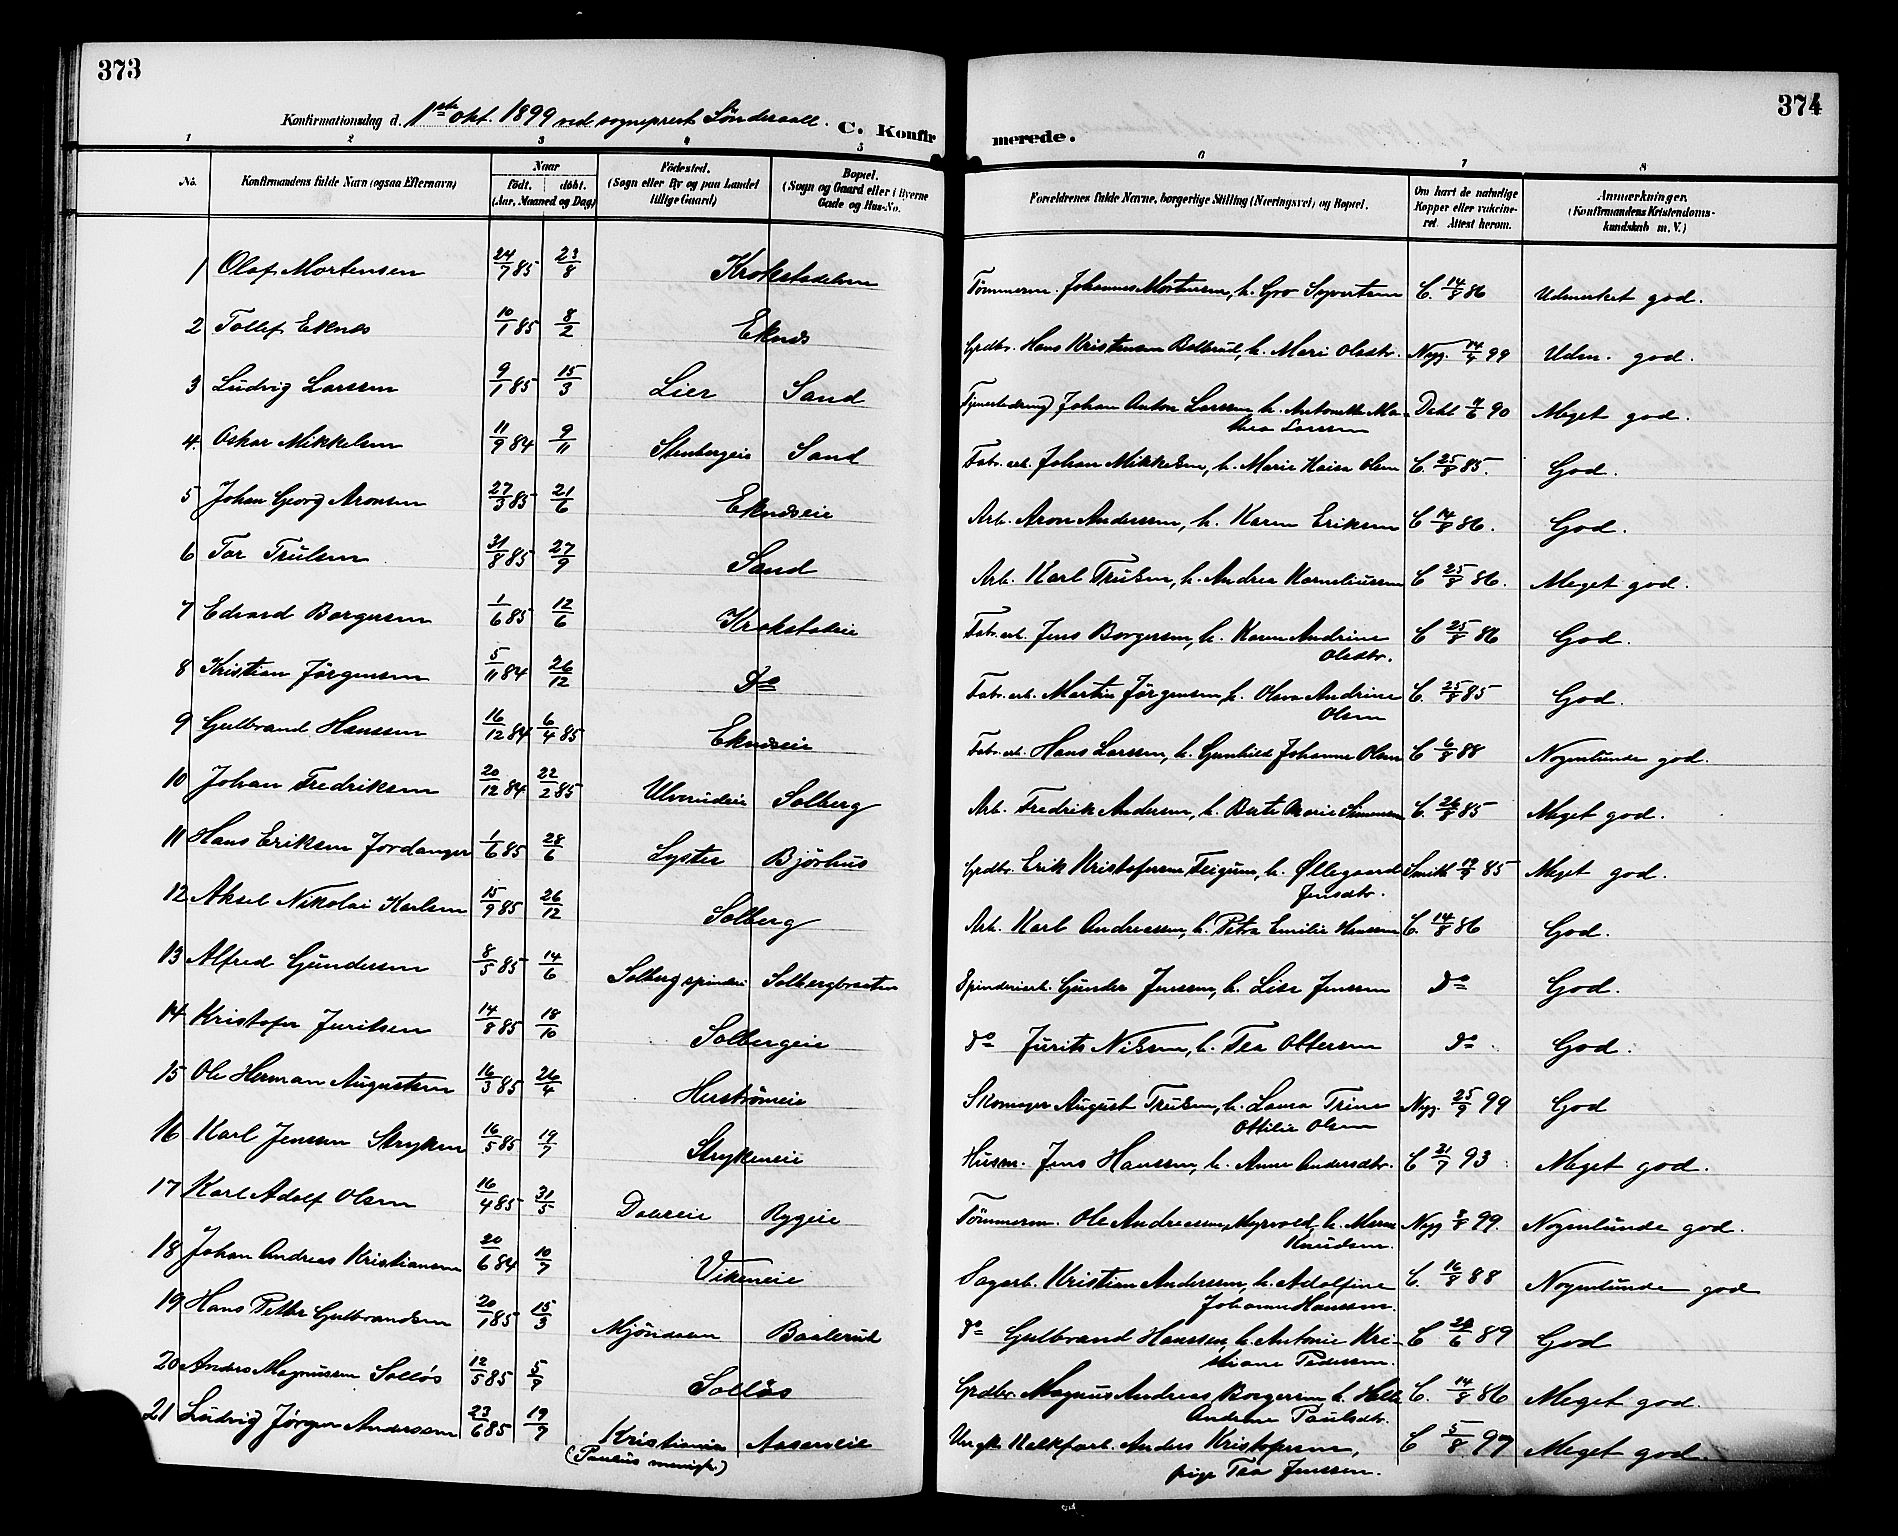 373
374
Konfirmationsdag d. 1ste okt. 1899 ved sogneprest Sönderaall. C. Konfirmerede.
1 2 3 4 5 6 7 8
No. Konfirmandens fulde Navn (ogsaa Efternavn) Naar födt. döbt. (Aar, Maaned og Dag) Födested. (Sogn eller By og paa Landet tillige Gaard) Bopæl. (Sogn og Gaard eller i Byerne Gade og Hus-No.
Forældrenes fulde Navne, borgerlige Stilling (Næringsvei) og Bopæl. Om havt de naturlige Kopper eller vakcineret. Attest herom. Anmærkninger. (Konfirmandens Kristendomskundskab m. V.)
1 Olaf Mortensen 24/7 85 23/8 Krokstadelven Tømmerm. Johannes Mortensen, h. Gro Syvertsen C. 14/8 86 Udmerket god.
2 Tollef Eknes 10/1 85 8/2 Eknes Grdbr. Hans Kristensen Bolbrud, h. Mari Olsdtr. Nyg. 14/9 99 Udm. god.
3 Ludvig Larssen 9/1 85 15/3 Lier Sand Johan Anton Larssen, h. Antonette Mathea Larssen Dahl 90 Meget god.
4. Oskar Mikkelsen 11/9 84 9/11 Stenbergeie Sand Fabr. arb. Johan Mikkelsen, h. Marie Kaisa Olsen C. 25/8 85. God.
5 Johan Georg Aronsen 27/3 85 21/6 Ekneseie Arb. Aron Anderssen, h. Karen Eriksen C 14/8 86. God.
6 Tor Trulsen 31/8 85 27/9 Sand Arb. Karl Trulsen, h. Andrea Korneliussen C 25/8 86. Meget god.
7 Edvard Borgersen 1/6 85 12/6 Krokstadeie Fabr. arb. Jens Borgersen, h. Karen Andrine Olsdtr. C 25/8 86 God.
8 Kristian Jørgensen 5/11 84 26/12 Do Fabr. arb. Martin Jørgensen, h. Olava Andrine Olsen C. 25/8 85 God.
9 Gulbrand Hanssen 16/12 84 6/4 85 Ekneseie Fabr. arb. Hans Larssen, h. Gunhild Johanne Olsen C 6/8 88 Nogenlunde god.
10 Johan Fredriksen 20/12 84 22/2 85 Ulverudeie Solberg Arb. Fredrik Andersen, h. Berte Marie Simensen C. 85 Meget god.
11 Hans Eriksen Jordanger 1/6 85 28/6 Lyster Bjørhus Grdbr. Erik Kristofersen Feigum, h. Øllegaard Jensdtr. Smith 85 Meget god.
12 Aksel Nikolai Karlsen 15/9 85 26/12 Solberg Arb. Karl Andreassen, h. Petra Emilie Hanssen C. 14/8 86 God.
13 Alfred Gundersen 8/5 85 14/6 Solberg spinderi Solbergbraaten Spinderiarb. Gunder Jenssen, h. Lise Jenssen Do God.
14 Kristofer Juritsen 14/8 85 18/10 Solbergeie do Jurits Nilsen, h. Tea Ottersen Do God.
15 Ole Herman Augustsen 16/3 85 26/4 Herströmeie Skomager August Trulsen, h. Laura Trine Ottilie Olsen Nyg. 25/9 99 God
16 Karl Jenssen Stryken 16/5 85 19/7 Strykeneie Husm. Jens Hanssen, h. Anne Andersdtr. C 21/7 93 Meget god.
17 Karl Adolf Olsen 16/4 85 31/5 Daleeie Rygeie Tømmerm. Ole Andreassen Myrvold, h. Maren Knudsen. Nyg 99. Nogenlunde god.
18 Johan Andreas Kristiansen 20/6 84 10/7 Vikeneie Sagarb. Kristian Anderssen, h. Adolfine Johanne Hanssen. C. 16/8 88 Nogenlunde god
19 Hans Petter Gulbrandsen 20/1 85 15/3 Mjöndalen Baalerud do Gulbrand Hanssen, h. Antonie Kristiane Pedersen. C 89 God
20 Anders Magnussen Solløs 12/5 85 5/7 Solløs Grdbr. Magnus Andreas Borgersen, h. Helle Andrine Paulsdtr. C. 14/8 86 Meget god.
21 Ludvig Jørgen Anderssen 23/6 85 19/7 Kristiania (Paulus menigh.) Aaserudeie Ungk. Anders Kristofersen, pige Tea Jenssen. C 5/8 97 Meget god.